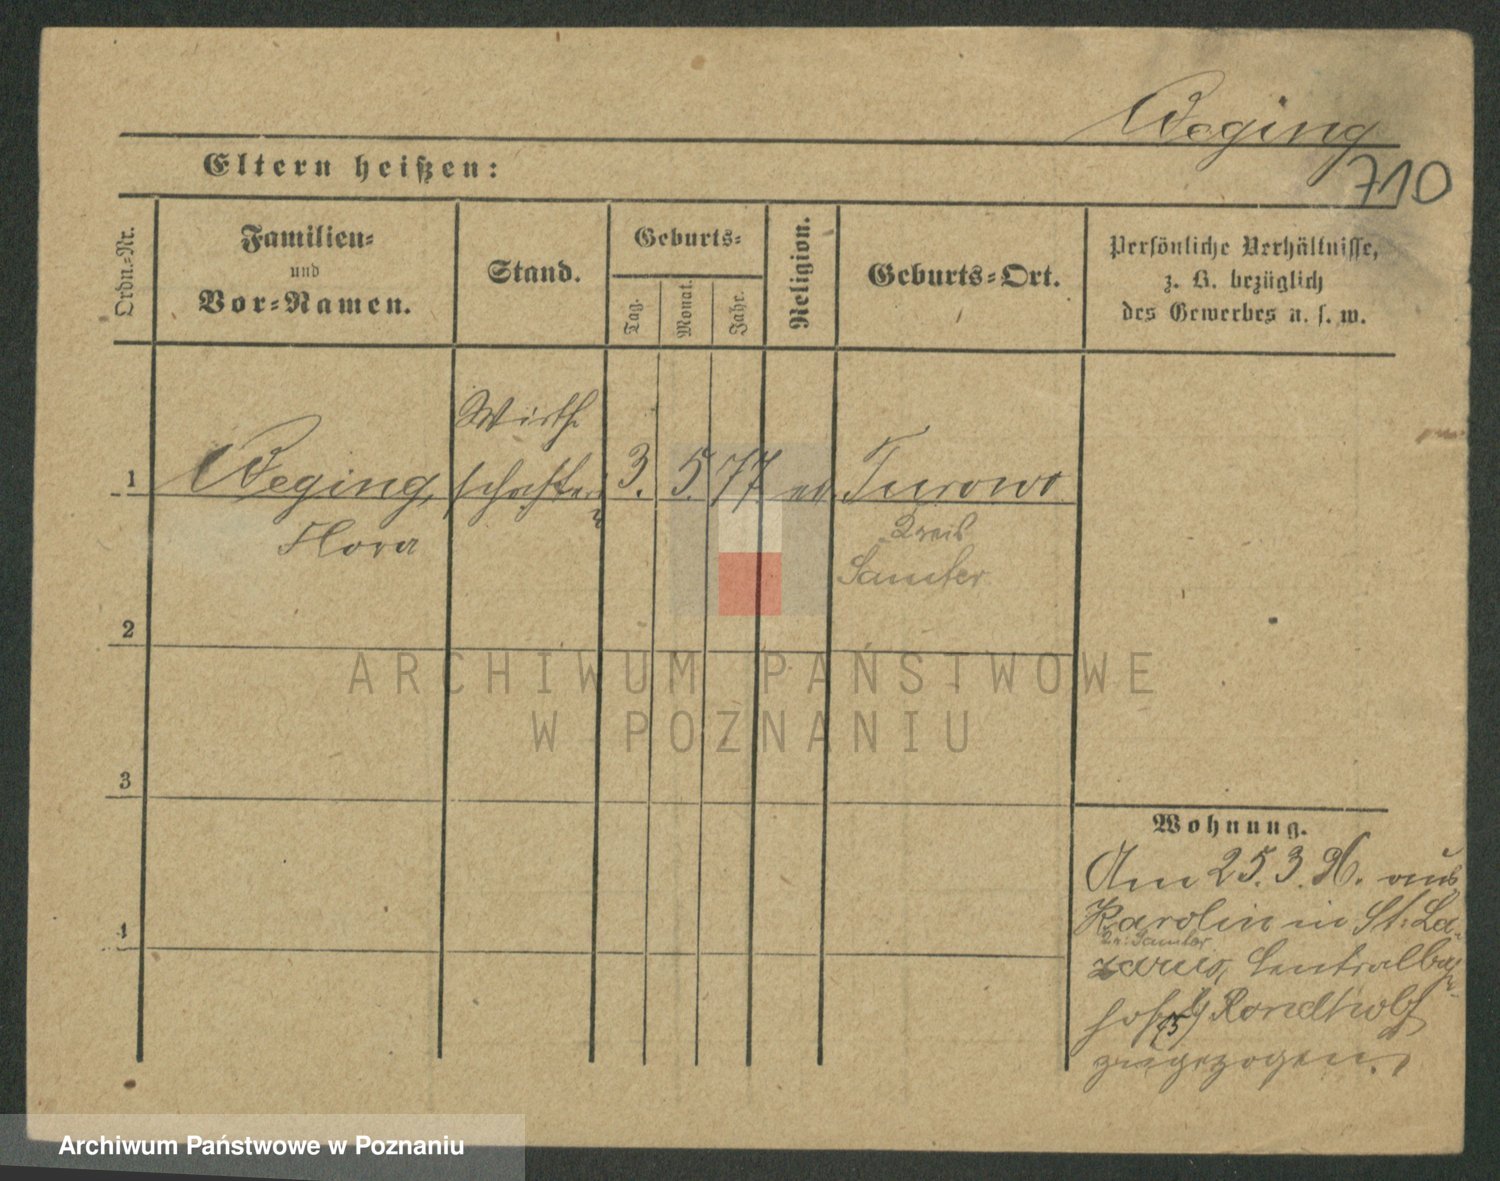 Weging
710
Eltern heißen:
Ordn.-Nr.
Familien-
und
Vor-Namen.
Stand.
Geburts-
Tag.
Monat.
Jahr.
Religion.
Geburts-Ort.
Persönliche Verhältnisse,
z. B. bezüglich
des Gewerbes u. s. w.
1
Weging,
Flora
Wirth
schafterin
3.
5.
77.
ev.
Turowo
Kreis
Samter
2
3
4
ARCHIWUM PAŃSTWOWE
W POZNANIU
Wohnung.
Am 25.3.96. aus
Karolin in St: La-
Kr: Samter
zarus, Centralba
hof b/
zugezogen.
Archiwum Państwowe w Poznaniu